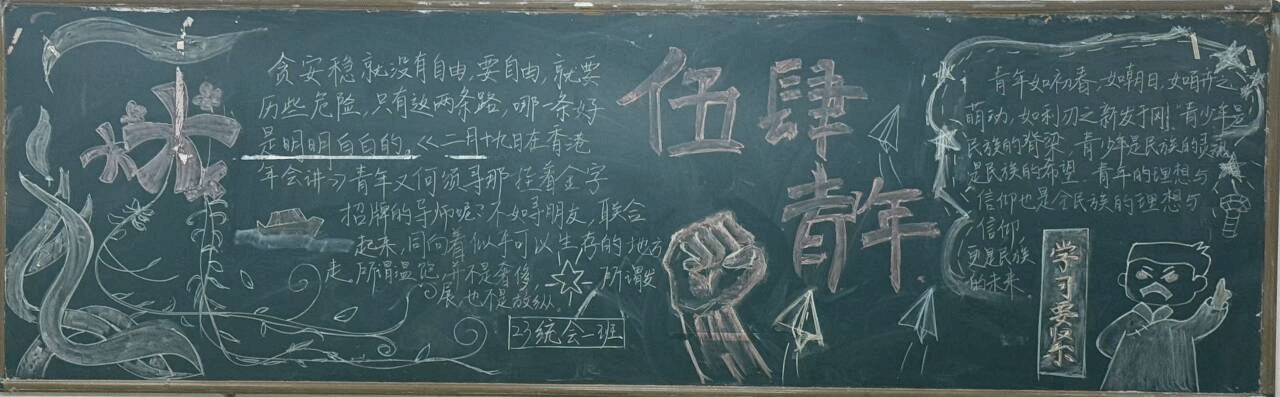 贪安稳就没有自由,要自由,就要
历些危险,只有这两条路,哪一条好
是明明白白的。《二月十九日在香港
年会讲》青年又何须寻那挂着金字
招牌的导师呢?不如寻朋友,联合
起来,同向着似乎可以生存的地方
走,所谓温饱,并不是奢侈,所谓发
展,也不是放纵。
23统会一班
伍肆
青年
青年如初春,如朝日,如百卉之
萌动,如利刃之新发于刚"青少年是
民族的脊梁,青少年是民族的灵魂
是民族的希望,青年的理想与
信仰也是全民族的理想与
信仰,
更是民族
的未来。
学习要紧